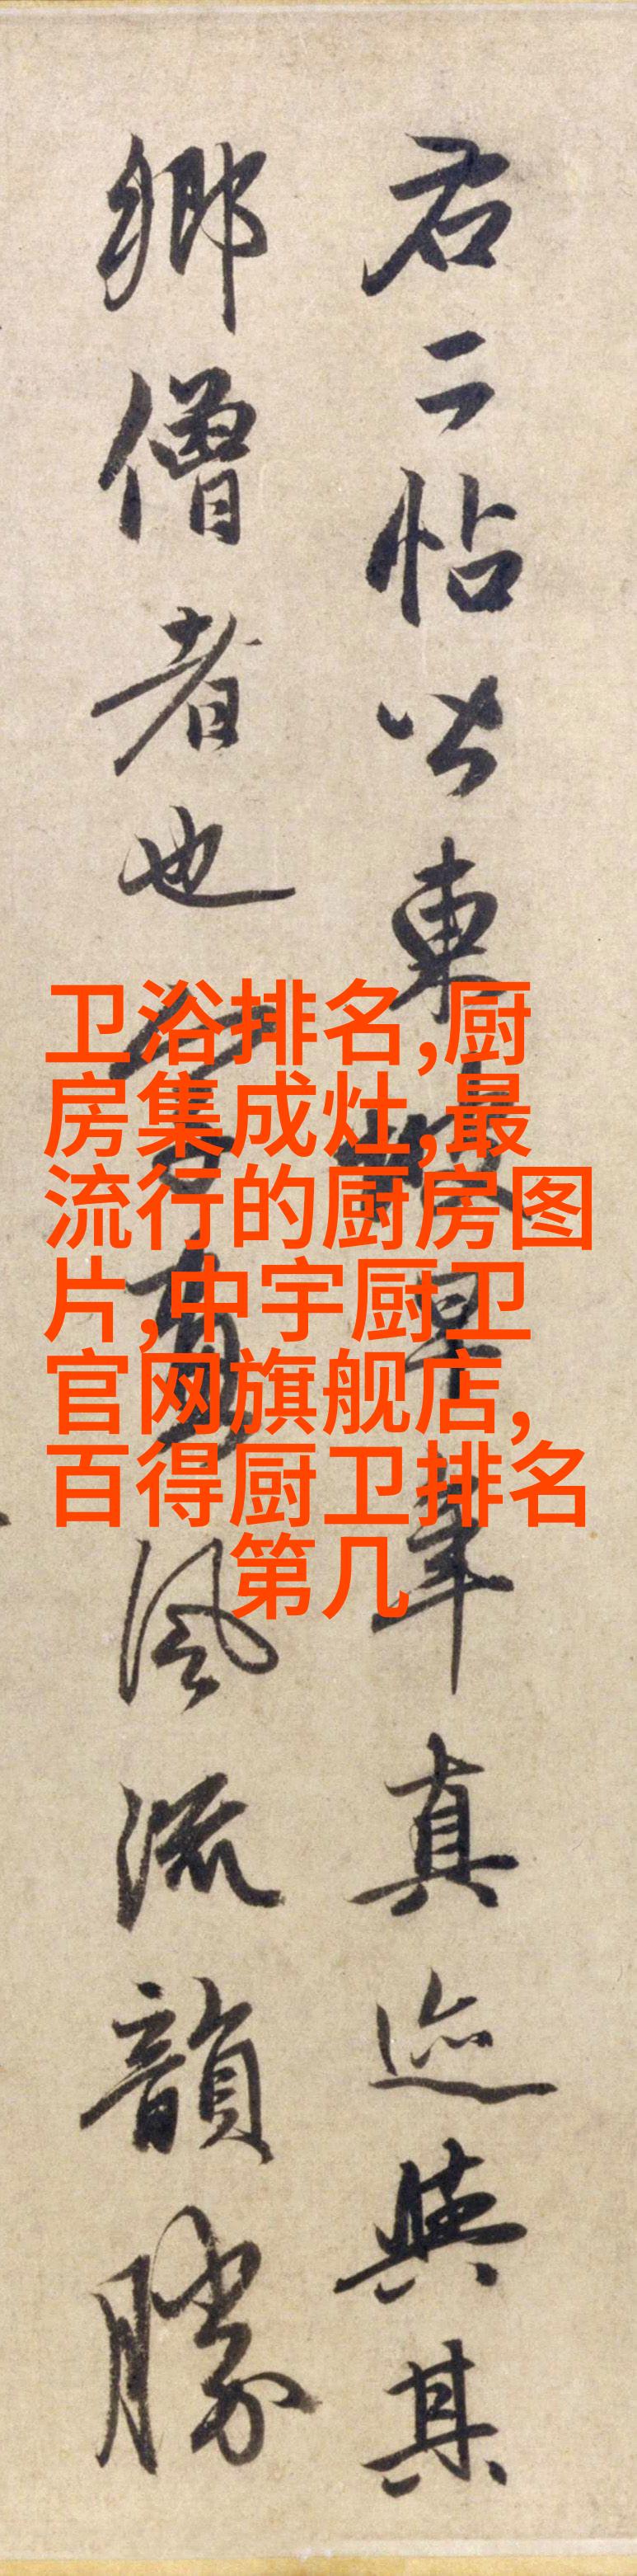 右二帖皆東坡早年真迹與其
鄉僧者也
風流韻勝
卫浴排名,厨
房集成灶,最
流行的厨房图
片,中宇厨卫
官网旗舰店,
百得厨卫排名
第几